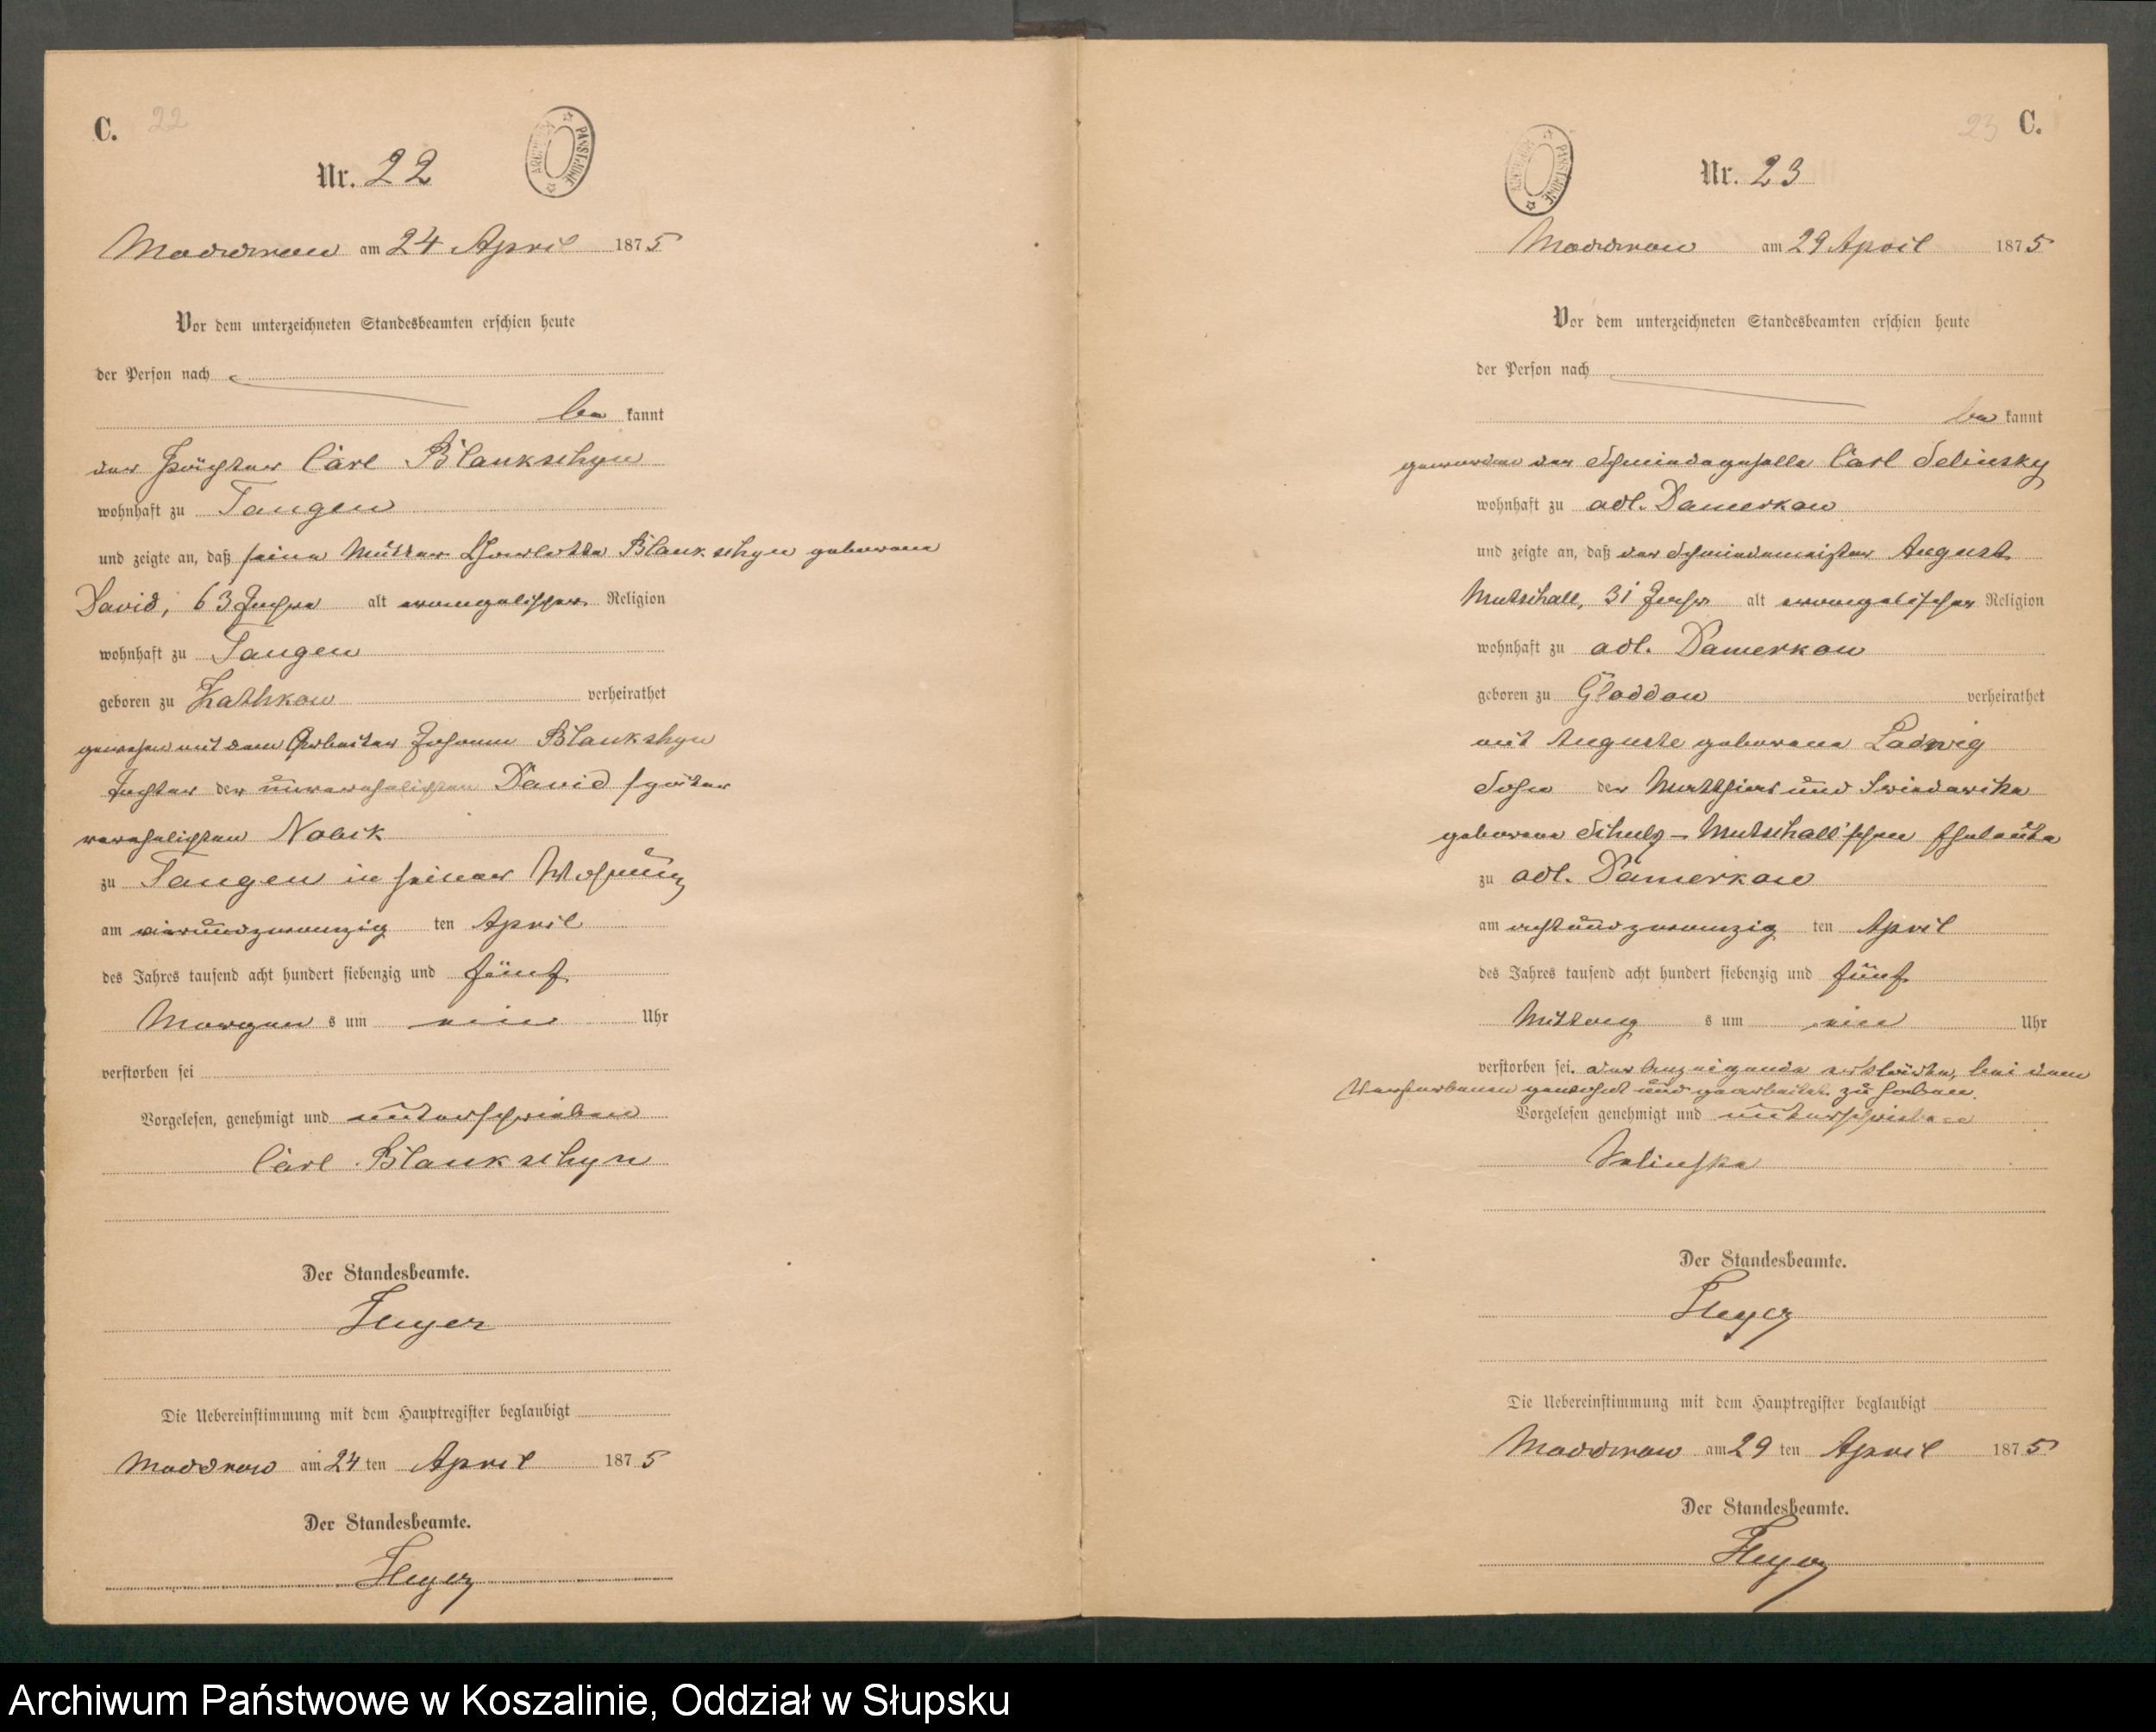 C. 22
Nr. 22
ARCHIWUM PAŃSTWOWE
Moddrow am 24 April 1875
Vor dem unterzeichneten Standesbeamten erschien heute
der Person nach
be kannt
der Pächter Carl Blankschyn
wohnhaft zu Tangen
und zeigte an, daß seine Mutter Charlotte Blankschyn geborene
David, 63 Jahre alt evangelischer Religion
wohnhaft zu Tangen
geboren zu Kathkow verheirathet
gewesen mit dem Arbeiter Johann Blankshyn
Tochter der unverehelichten David später
verehelichten Nobik
zu Tangen in seiner Wohnung
am vierundzwanzig ten April
des Jahres tausend acht hundert siebenzig und fünf
Morgen s um ein Uhr
verstorben sei
Vorgelesen, genehmigt und unterschrieben
Carl Blankschyn
Der Standesbeamte.
Heyer
Die Uebereinstimmung mit dem Hauptregister beglaubigt
Moddrow am 24 ten April 1875
Der Standesbeamte.
Heyer
23 C.
Nr. 23
ARCHIWUM PAŃSTWOWE
Moddrow am 29 April 1875
Vor dem unterzeichneten Standesbeamten erschien heute
der Person nach
be kannt
geworden der Schmiedegeselle Carl Selinsky
wohnhaft zu adl. Damerkow
und zeigte an, daß der Schmiedemeister August
Mutschall, 31 Jahr alt evangelischer Religion
wohnhaft zu adl. Damerkow
geboren zu Gloddow verheirathet
mit Auguste geborene Ladwig
Sohn der Matthias und Friederike
geborene Schulz-Mutschall'schen Eheleute
zu adl. Damerkow
am achtundzwanzig ten April
des Jahres tausend acht hundert siebenzig und fünf
Mittag s um ein Uhr
verstorben sei. Der Anzeigende erklärte, bei dem
Verstorbenen gewohnt und gearbeitet zu haben.
Vorgelesen genehmigt und unterschrieben
Der Standesbeamte.
Heyer
Die Uebereinstimmung mit dem Hauptregister beglaubigt
Moddrow am 29 ten April 1875
Der Standesbeamte.
Heyer
Archiwum Państwowe w Koszalinie, Oddział w Słupsku